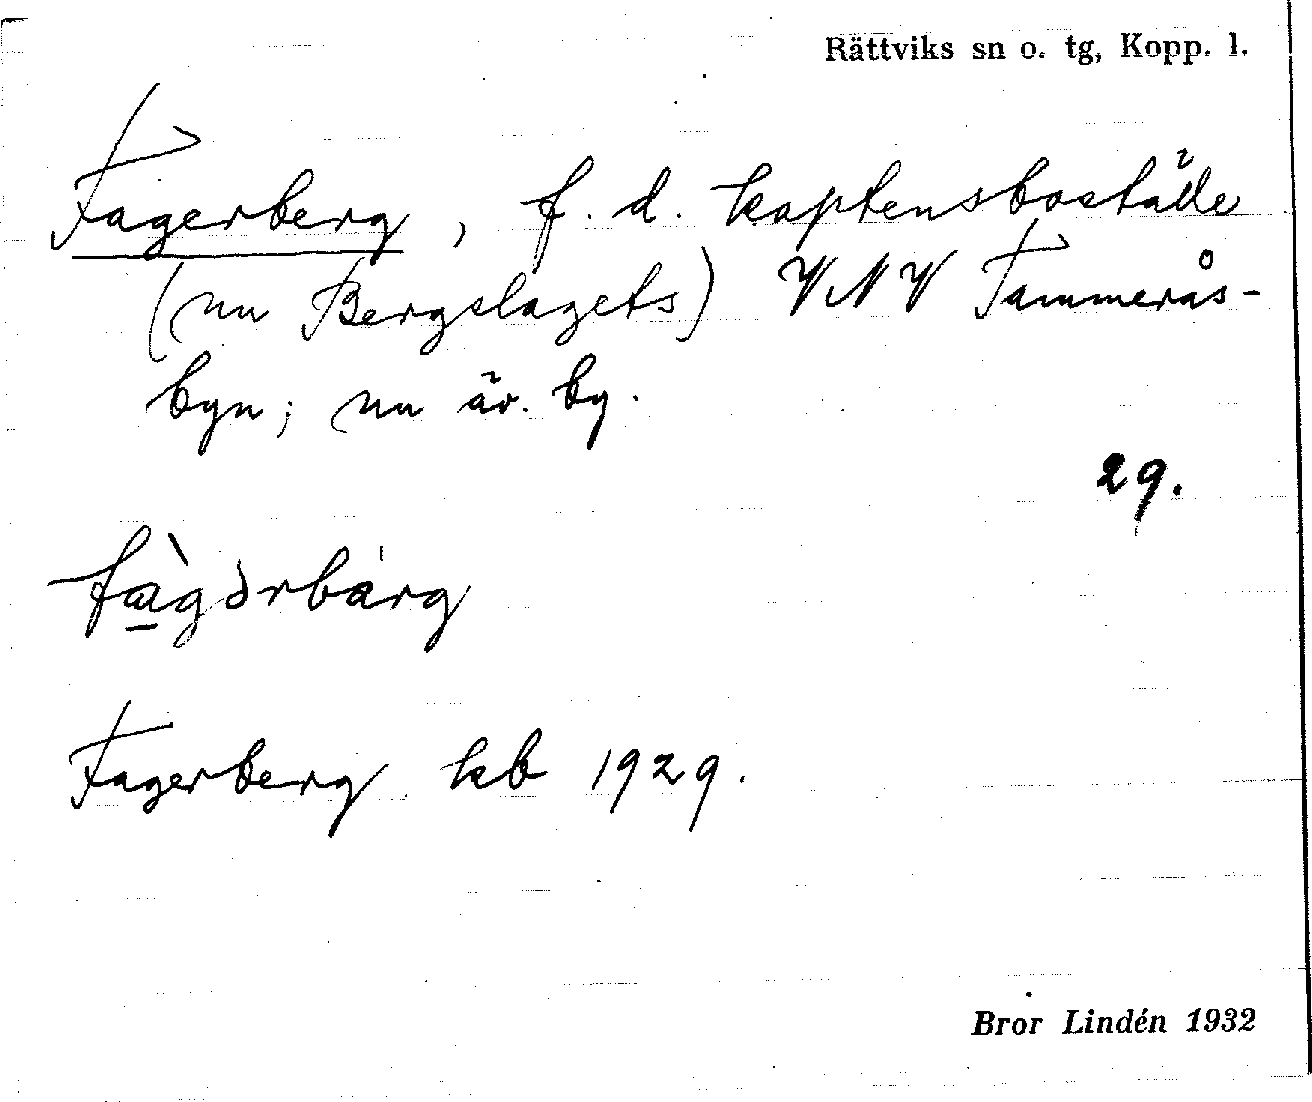 Rättviks sn o. tg, Kopp. l.
Fagerberg, f. d. kaptensboställe
(nu Bergslagets) VNV Tammerås-
byn; nu äv. by.
29.
fàgərbárg
Fagerberg kb 1929.
Bror Lindén 1932